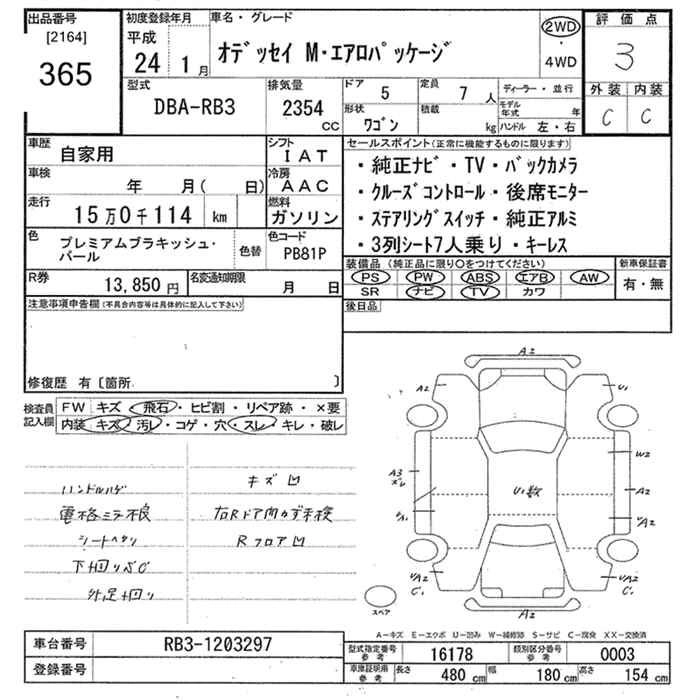 出品番号
[2164]
365
初度登録年月
平成
24 1月
車名・グレード
オデッセイ M・エアロパッケージ
2WD
・
4WD
評価点
3
外装 内装
C C
型式
DBA-RB3
排気量
2354
cc
ドア 5
定員 7人
形状 ワゴン
積載 kg
ディーラー・並行
モデル年式 年
ハンドル 左・右
車歴 自家用
シフト IAT
車検 年 月( 日)
冷房 AAC
走行 15万0千114 km
燃料 ガソリン
色 プレミアムブラキッシュ・パール
色替
色コード PB81P
R券 13,850円
名変通知期限 月 日
セールスポイント(正常に機能するものに限ります)
・純正ナビ・TV・バックカメラ
・クルーズコントロール・後席モニター
・ステアリングスイッチ・純正アルミ
・3列シート7人乗り・キーレス
装備品(純正品に限り○をつけてください)
PS PW ABS エアB AW
SR ナビ TV カワ
新車保証書
有・無
後日品
注意事項申告欄(不具合内容等は具体的に記入して下さい)
修復歴 有〔箇所 〕
検査員記入欄
FW キズ・飛石・ヒビ割・リペア跡・×要
内装 キズ・汚レ・コゲ・穴・スレ・キレ・破レ
ハンドルハゲ
キズ凹
電格ミラー不良
シートヘタリ
Rフロア凹
下廻りサビ
外足廻り
A2
A2
U1
W2
A3
スレ
U1数
A2
A2
C1
A2
スペア
A-キズ E-エクボ U-凹み W-補修跡 S-サビ C-腐食 XX-交換済
車台番号 RB3-1203297
登録番号
型式指定番号 参考 16178
類別区分番号 参考 0003
車庫証明用 参考 長さ 480cm 幅 180cm 高さ 154cm